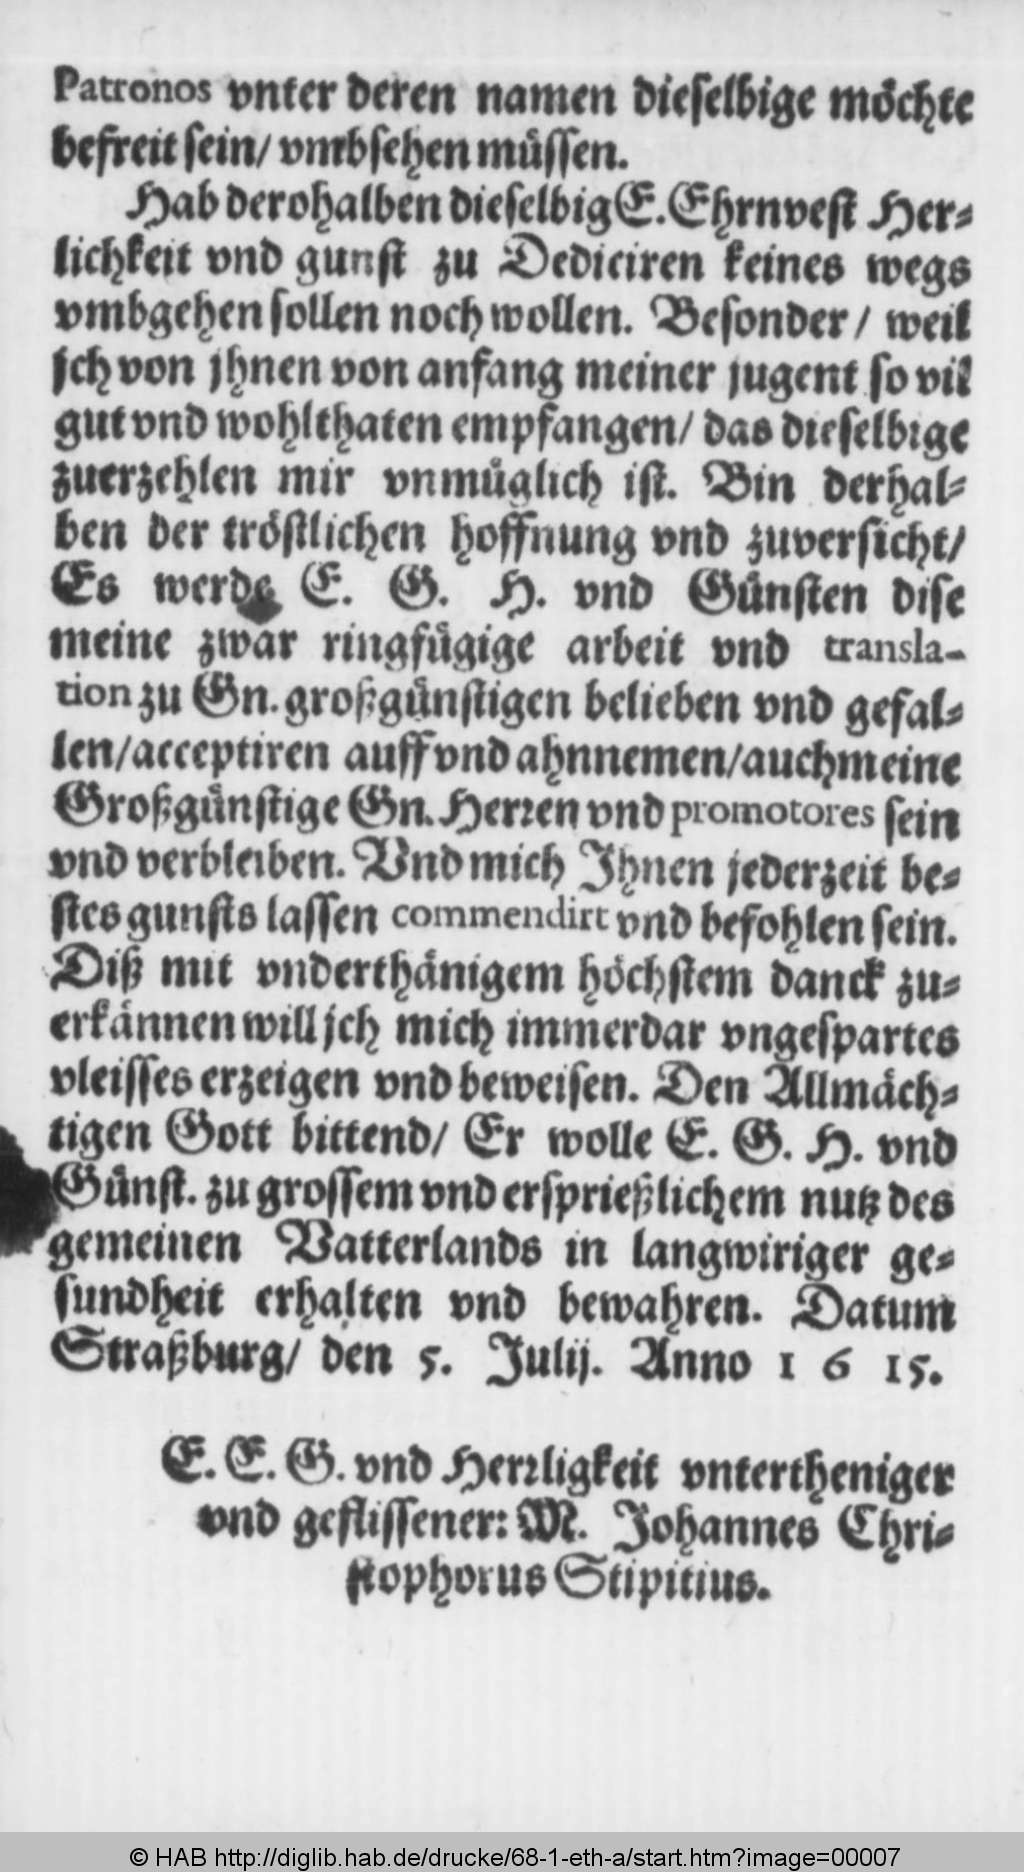 Patronos vnter deren namen dieselbige möchte
befreit sein/ vmbsehen müssen.
Hab derohalben dieselbig E. Ehrnvest Her-
lichkeit vnd gunst zu Dediciren keines wegs
vmbgehen sollen noch wollen. Besonder/ weil
jch von jhnen von anfang meiner jugent so vil
gut vnd wohlthaten empfangen/ das dieselbige
zuerzehlen mir vnmüglich ist. Bin derhal-
ben der tröstlichen hoffnung vnd zuversicht/
Es werde E. G. H. vnd Günsten dise
meine zwar ringfügige arbeit vnd transla-
tion zu Gn. großgünstigen belieben vnd gefal-
len/ acceptiren auff vnd ahnnemen/ auch meine
Großgünstige Gn. Herren vnd promotores sein
vnd verbleiben. Vnd mich Ihnen jederzeit be-
stes gunsts lassen commendirt vnd befohlen sein.
Diß mit vnderthänigem höchstem danck zu-
erkännen will jch mich immerdar vngespartes
vleisses erzeigen vnd beweisen. Den Allmäch-
tigen Gott bittend/ Er wolle E. G. H. vnd
Günst. zu grossem vnd ersprießlichem nutz des
gemeinen Vatterlands in langwiriger ge-
sundheit erhalten vnd bewahren. Datum
Straßburg/ den 5. Julij. Anno 1 6 15.
E. E. G. vnd Herrligkeit vntertheniger
vnd geflissener: M. Johannes Chri-
stophorus Stipitius.
© HAB http://diglib.hab.de/drucke/68-1-eth-a/start.htm?image=00007